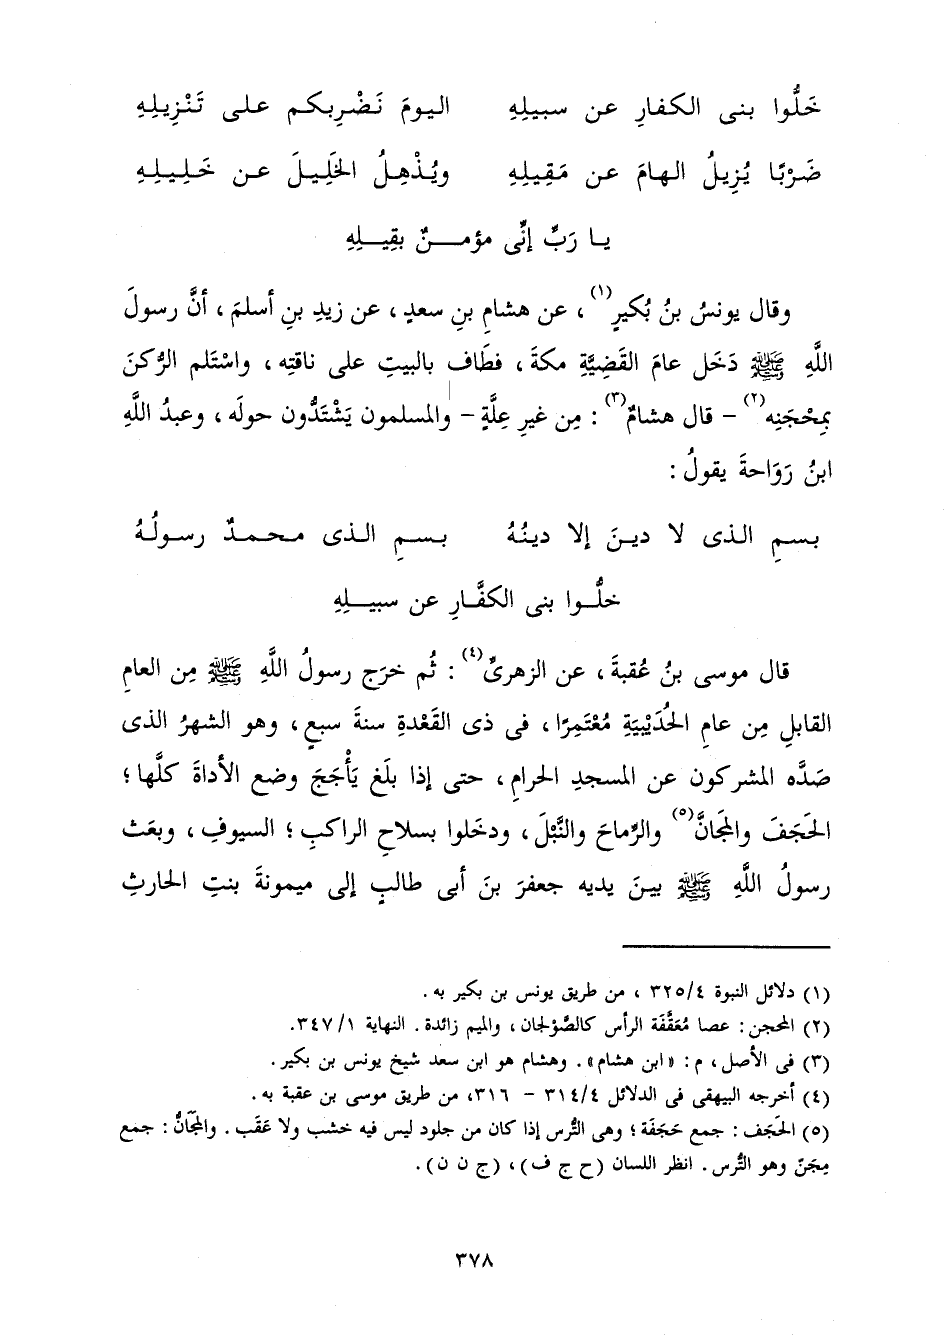 خَلُّوا بنى الكفارِ عن سبيلِهِ اليومَ نَضْرِبكم على تَنْزِيلِهِ
ضَرْبًا يُزِيلُ الهامَ عن مَقِيلِهِ ويُذْهِلُ الخَلِيلَ عن خَلِيلِهِ
يا رَبِّ إنِّى مؤمنٌ بقِيلِهِ
وقال يونسُ بنُ بُكيرٍ(١)، عن هشامِ بنِ سعدٍ، عن زيدِ بنِ أسلمَ، أنَّ رسولَ
اللَّهِ ﷺ دَخَل عامَ القَضِيَّةِ مكةَ، فطَاف بالبيتِ على ناقتِه، واسْتَلم الرُّكنَ
بمِحْجَنِه(٢) - قال هشامٌ(٣): مِن غيرِ عِلَّةٍ - والمسلمون يَشْتَدُّون حولَه، وعبدُ اللَّهِ
ابنُ رَوَاحةَ يقولُ:
بسمِ الذى لا دينَ إلا دينُهُ بسمِ الذى محمدٌ رسولُهُ
خلُّوا بنى الكفَّارِ عن سبيلِهِ
قال موسى بنُ عُقبةَ، عن الزهرىِّ(٤): ثُم خرَج رسولُ اللَّهِ ﷺ مِن العامِ
القابلِ مِن عامِ الحُدَيْبِيَةِ مُعْتَمِرًا، فى ذى القَعْدةِ سنةَ سبعٍ، وهو الشهرُ الذى
صَدَّه المشركون عن المسجدِ الحرامِ، حتى إذا بلَغ يَأْجَجَ وضع الأداةَ كلَّها؛
الحَجَفَ والمجَانَّ(٥) والرِّماحَ والنَّبْلَ، ودخَلوا بسلاحِ الراكبِ؛ السيوفِ، وبعَث
رسولُ اللَّهِ ﷺ بينَ يديه جعفرَ بنَ أبى طالبٍ إلى ميمونةَ بنتِ الحارثِ
(١) دلائل النبوة ٣٢٥/٤، من طريق يونس بن بكير به.
(٢) المحجن: عصا مُعَقَّفَة الرأس كالصَّوْلجان، والميم زائدة. النهاية ٣٤٧/١.
(٣) فى الأصل، م: «ابن هشام». وهشام هو ابن سعد شيخ يونس بن بكير.
(٤) أخرجه البيهقى فى الدلائل ٣١٤/٤ - ٣١٦، من طريق موسى بن عقبة به.
(٥) الحَجَف: جمع حَجَفَة؛ وهى التُّرس إذا كان من جلود ليس فيه خشب ولا عَقَب. والمَجَانُّ: جمع
مِجَنّ وهو التُّرس. انظر اللسان (ح ج ف)، (ج ن ن).
٣٧٨